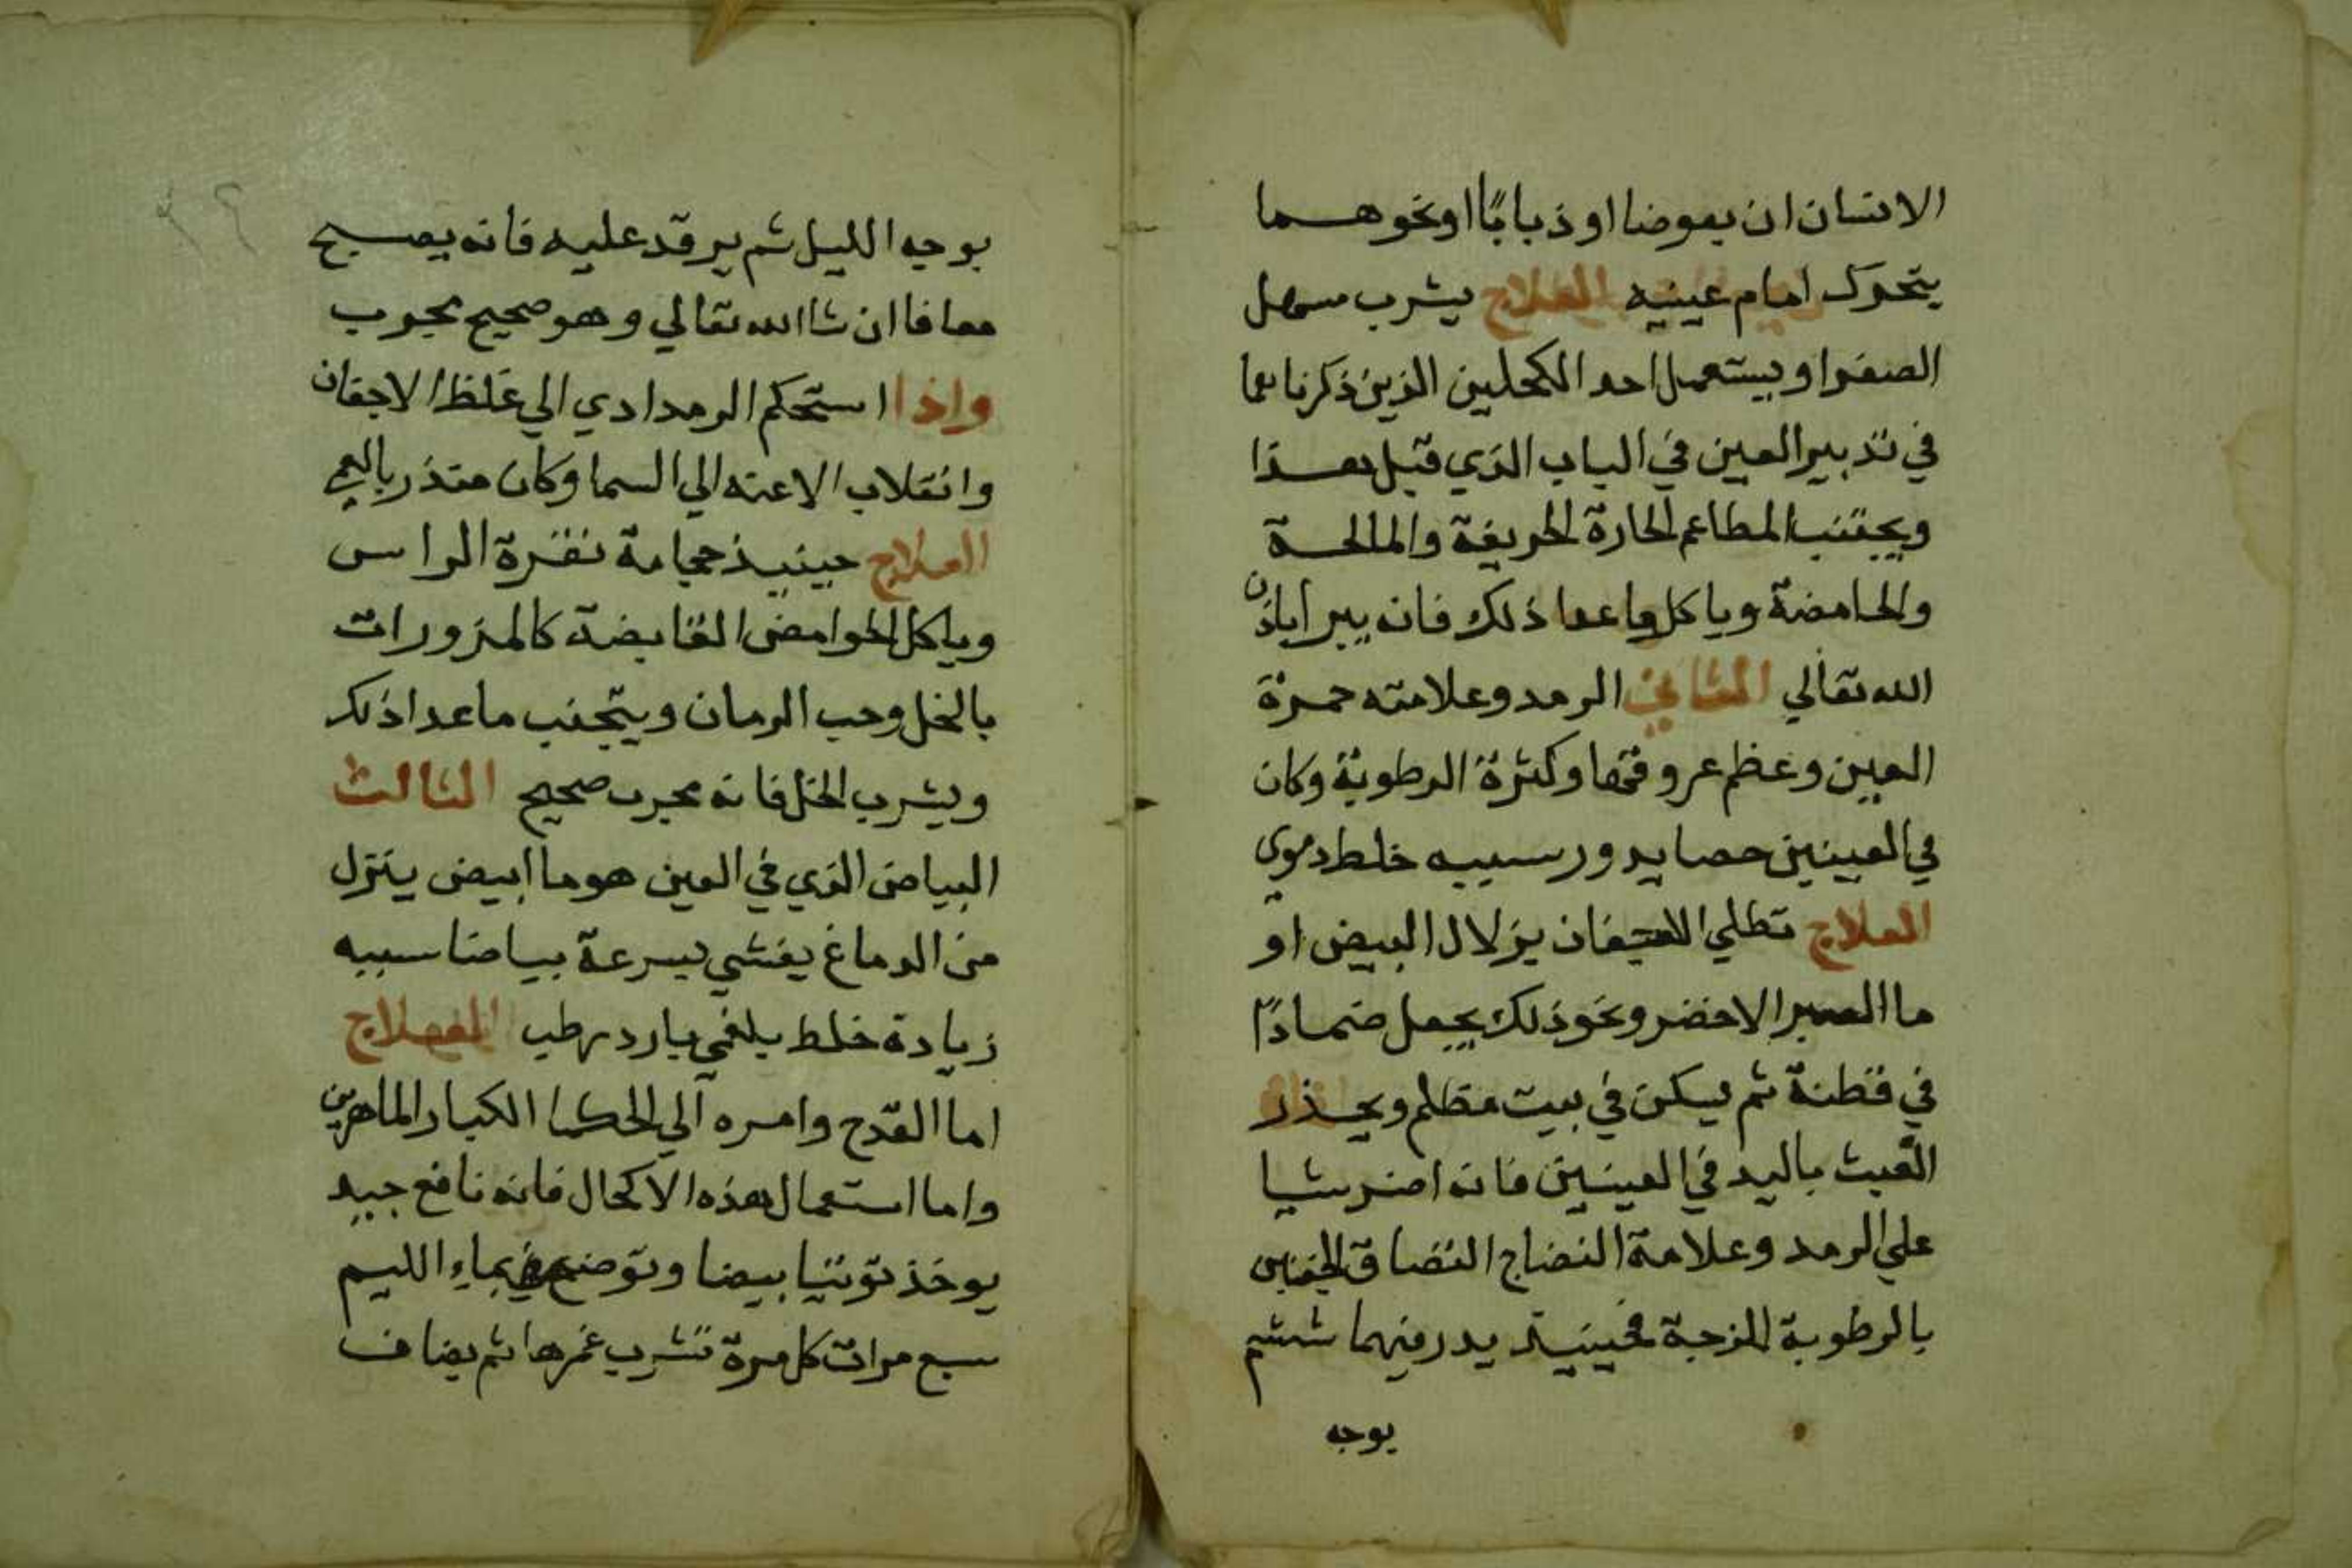 الانسان ان بعوضا او ذبابًا او نحوهما
يتحرك امام عينيه العلاج يشرب مسهل
الصفرا ويستعمل احد الكحلين الذين ذكرناهما
في تدبير العين في الباب الذي قبل هذا
ويجتنب المطاعم الحارة الحريفة والمالحة
والحامضة وياكل ما عدا ذلك فانه يبرا باذن
الله تعالي الثاني الرمد وعلامته حمرة
العين وعظم عروقها وكثرة الرطوبة وكان
في العينين حصا يدور سببه خلط دموي
العلاج تطلي الاجفان بزلال البيض او
ما الصبر الاخضر ونحو ذلك يجعل ضمادًا
في قطنة ثم يسكن في بيت مظلم ويحذر
العبث باليد في العينين فانه اضر شيا
علي الرمد وعلامة النضاج التصاق الجفنين
بالرطوبة اللزجة فحينيذ يدر فيهما ششم
يوجه
يوجه الليل ثم يرقد عليه فانه يصبح
معافا ان شا الله تعالي وهو صحيح مجرب
واذا استحكم الرمد ادي الي غلظ الاجفان
وانقلاب الاعنه الي السما وكان منذر بالعمي
العلاج حينيذ حجامة نقرة الراس
وياكل الحوامض القابضة كالمزورات
بالخل وحب الرمان ويتجنب ما عدا ذلك
ويشرب الخل فانه مجرب صحيح الثالث
البياض الذي في العين هو ما ابيض ينزل
من الدماغ يغشي بسرعة بياضا سببه
زيادة خلط بلغمي بارد رطب العلاج
اما القدح وامره الي الحكما الكبار الماهرين
واما استعمال هذه الاكحال فانه نافع جيد
يوخذ توتيا بيضا وتوضع في ماء الليم
سبع مرات كل مرة تشرب غمرها ثم يضاف